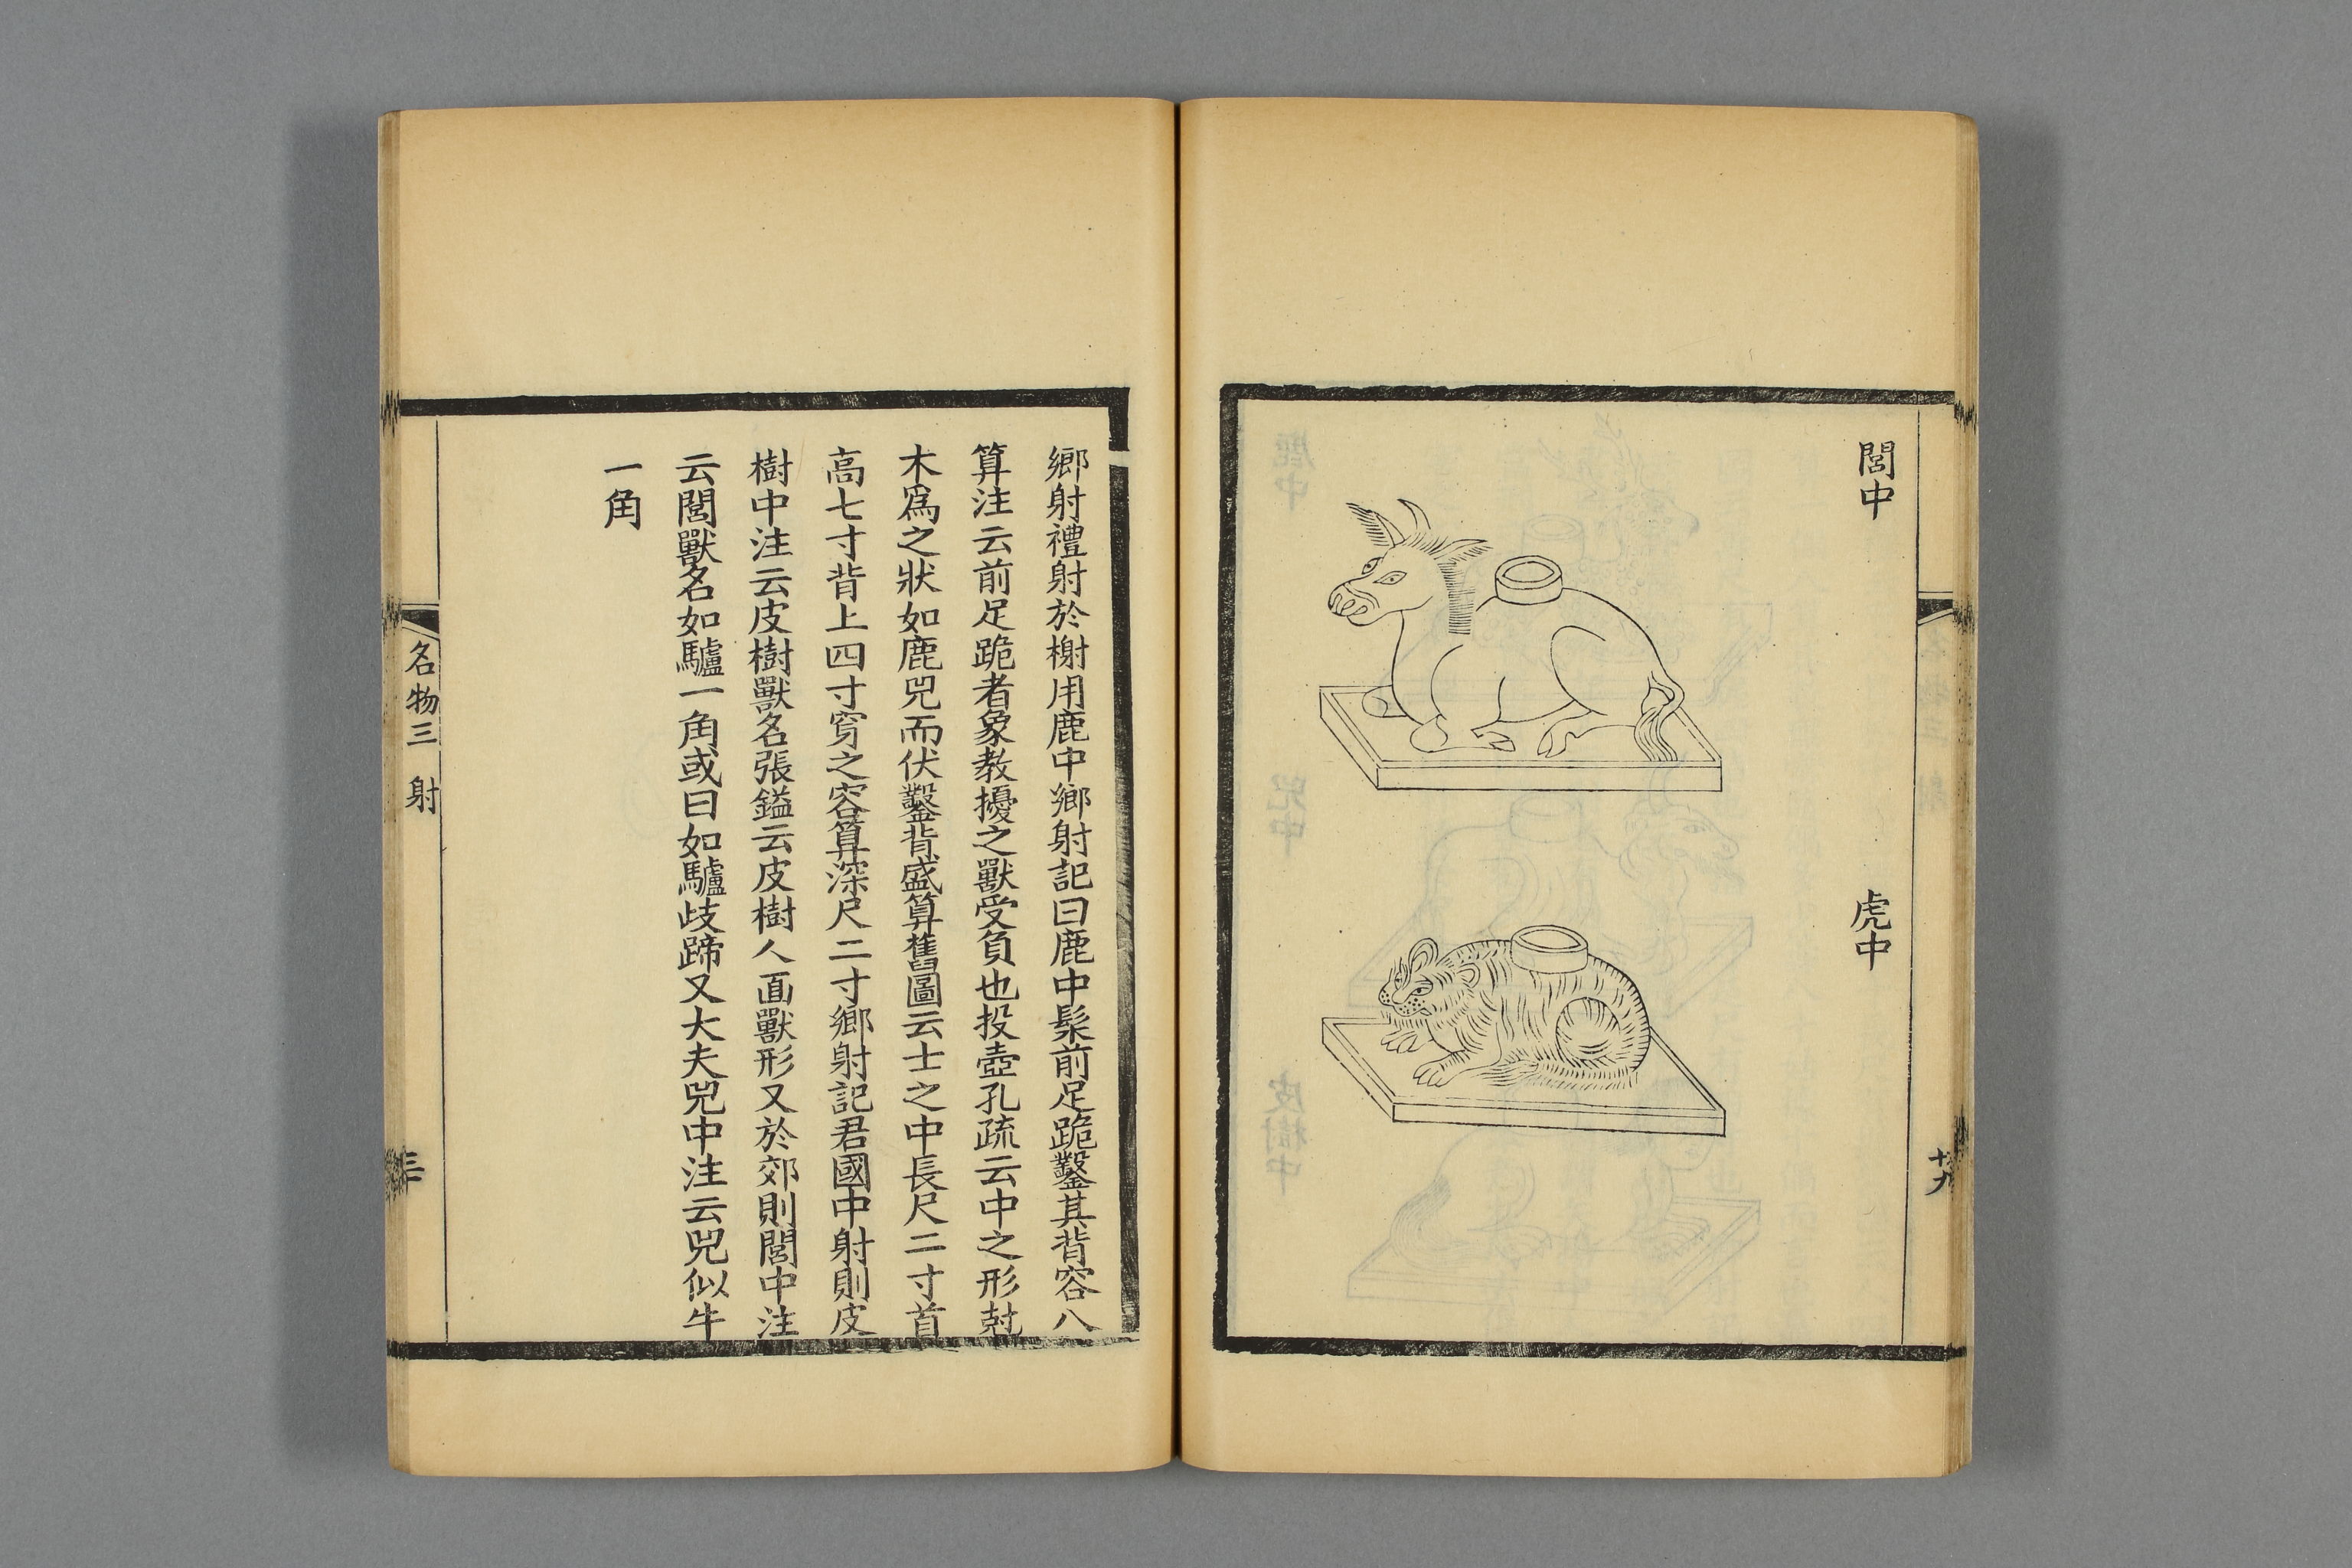 閭中
虎中
十九
鄉射禮射於榭用鹿中鄉射記曰鹿中髤前足跪鑿其背容八
算注云前足跪者象教擾之獸受負也投壺孔疏云中之形尅
木爲之狀如鹿兕而伏鑿背盛算舊圖云士之中長尺二寸首
高七寸背上四寸穿之容算深尺二寸鄉射記君國中射則皮
樹中注云皮樹獸名張鎰云皮樹人面獸形又於郊則閭中注
云閭獸名如驢一角或曰如驢歧蹄又大夫兕中注云兕似牛
一角
名物三 射